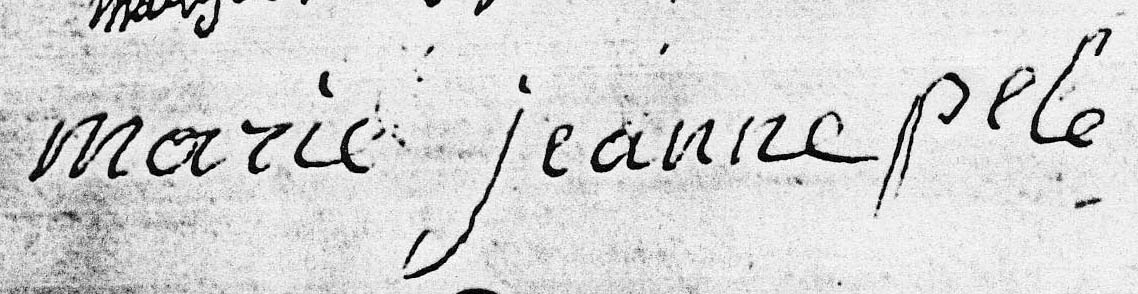 marie jeanne pele